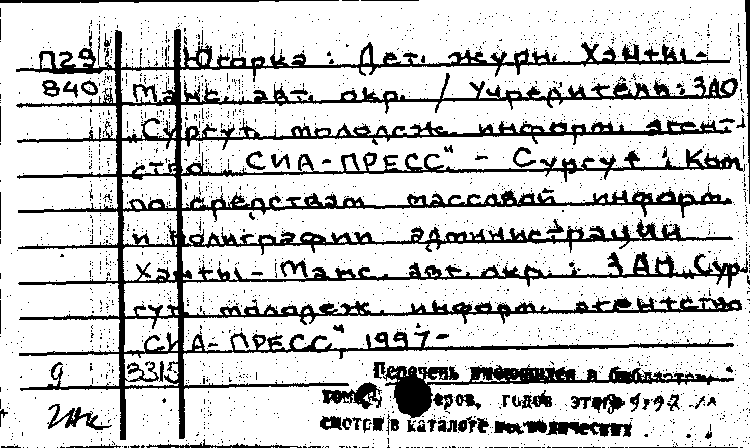 П29 Югорка : Дет. журн. Ханты-
840 Манс. авт. окр. / Учредитель: ЗАО
„Сургут. молодеж. информ. агент-
ство „СИА-ПРЕСС“ - Сургут : Ком
по средствам массовой информ.
и полиграфии администрации
Ханты-Манс. авт. окр. : ЗАО „Сур-
гут. молодеж. информ. агентство
„СИА-ПРЕСС“, 1997-
9 3315 Перечень имеющихся в библиотеке
томов, номеров, годов этого
смотри в каталоге периодических